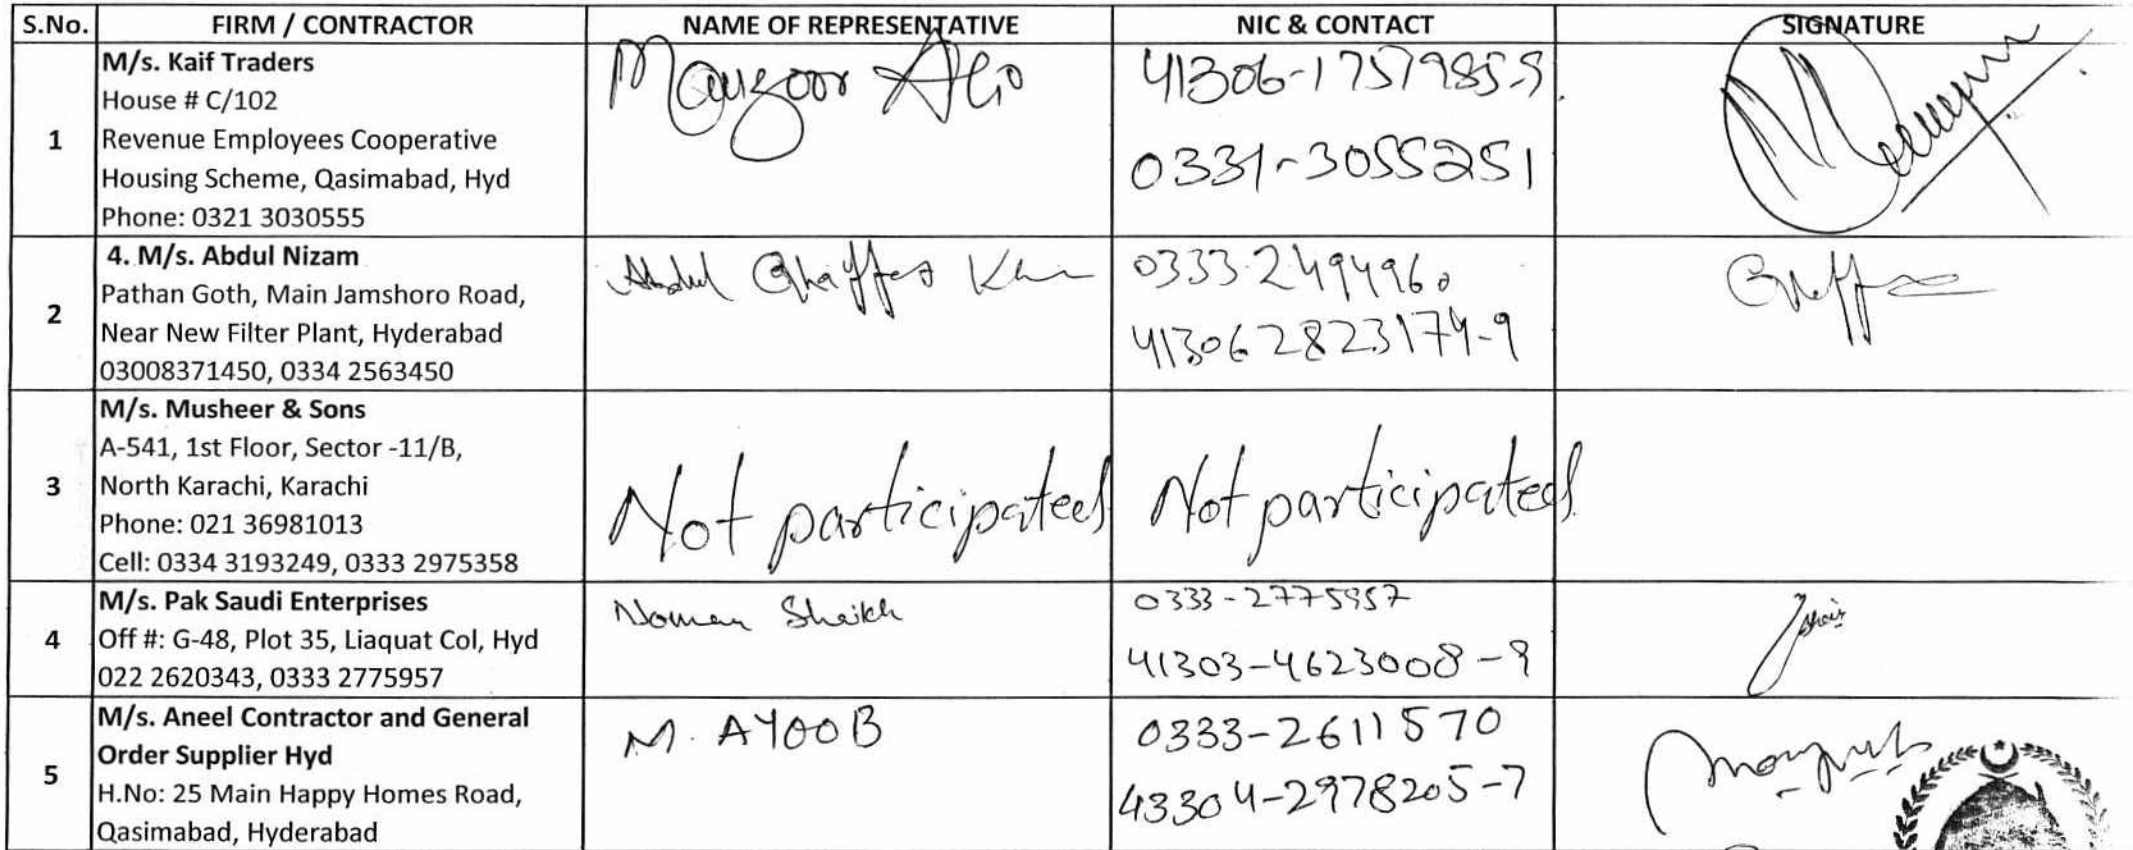 S.No. FIRM / CONTRACTOR NAME OF REPRESENTATIVE NIC & CONTACT SIGNATURE
1
M/s. Kaif Traders
House # C/102
Revenue Employees Cooperative
Housing Scheme, Qasimabad, Hyd
Phone: 0321 3030555
Manzoor Ali
41306-1757985-9
0331-3055251
2
4. M/s. Abdul Nizam
Pathan Goth, Main Jamshoro Road,
Near New Filter Plant, Hyderabad
03008371450, 0334 2563450
Abdul Ghaffar Khan
0333-2494960
413062823174-9
3
M/s. Musheer & Sons
A-541, 1st Floor, Sector -11/B,
North Karachi, Karachi
Phone: 021 36981013
Cell: 0334 3193249, 0333 2975358
Not participated
Not participated
4
M/s. Pak Saudi Enterprises
Off #: G-48, Plot 35, Liaquat Col, Hyd
022 2620343, 0333 2775957
Noman Shaikh
0333-2775957
41303-4623008-9
5
M/s. Aneel Contractor and General
Order Supplier Hyd
H.No: 25 Main Happy Homes Road,
Qasimabad, Hyderabad
M. AYOOB
0333-2611570
43304-2978205-7